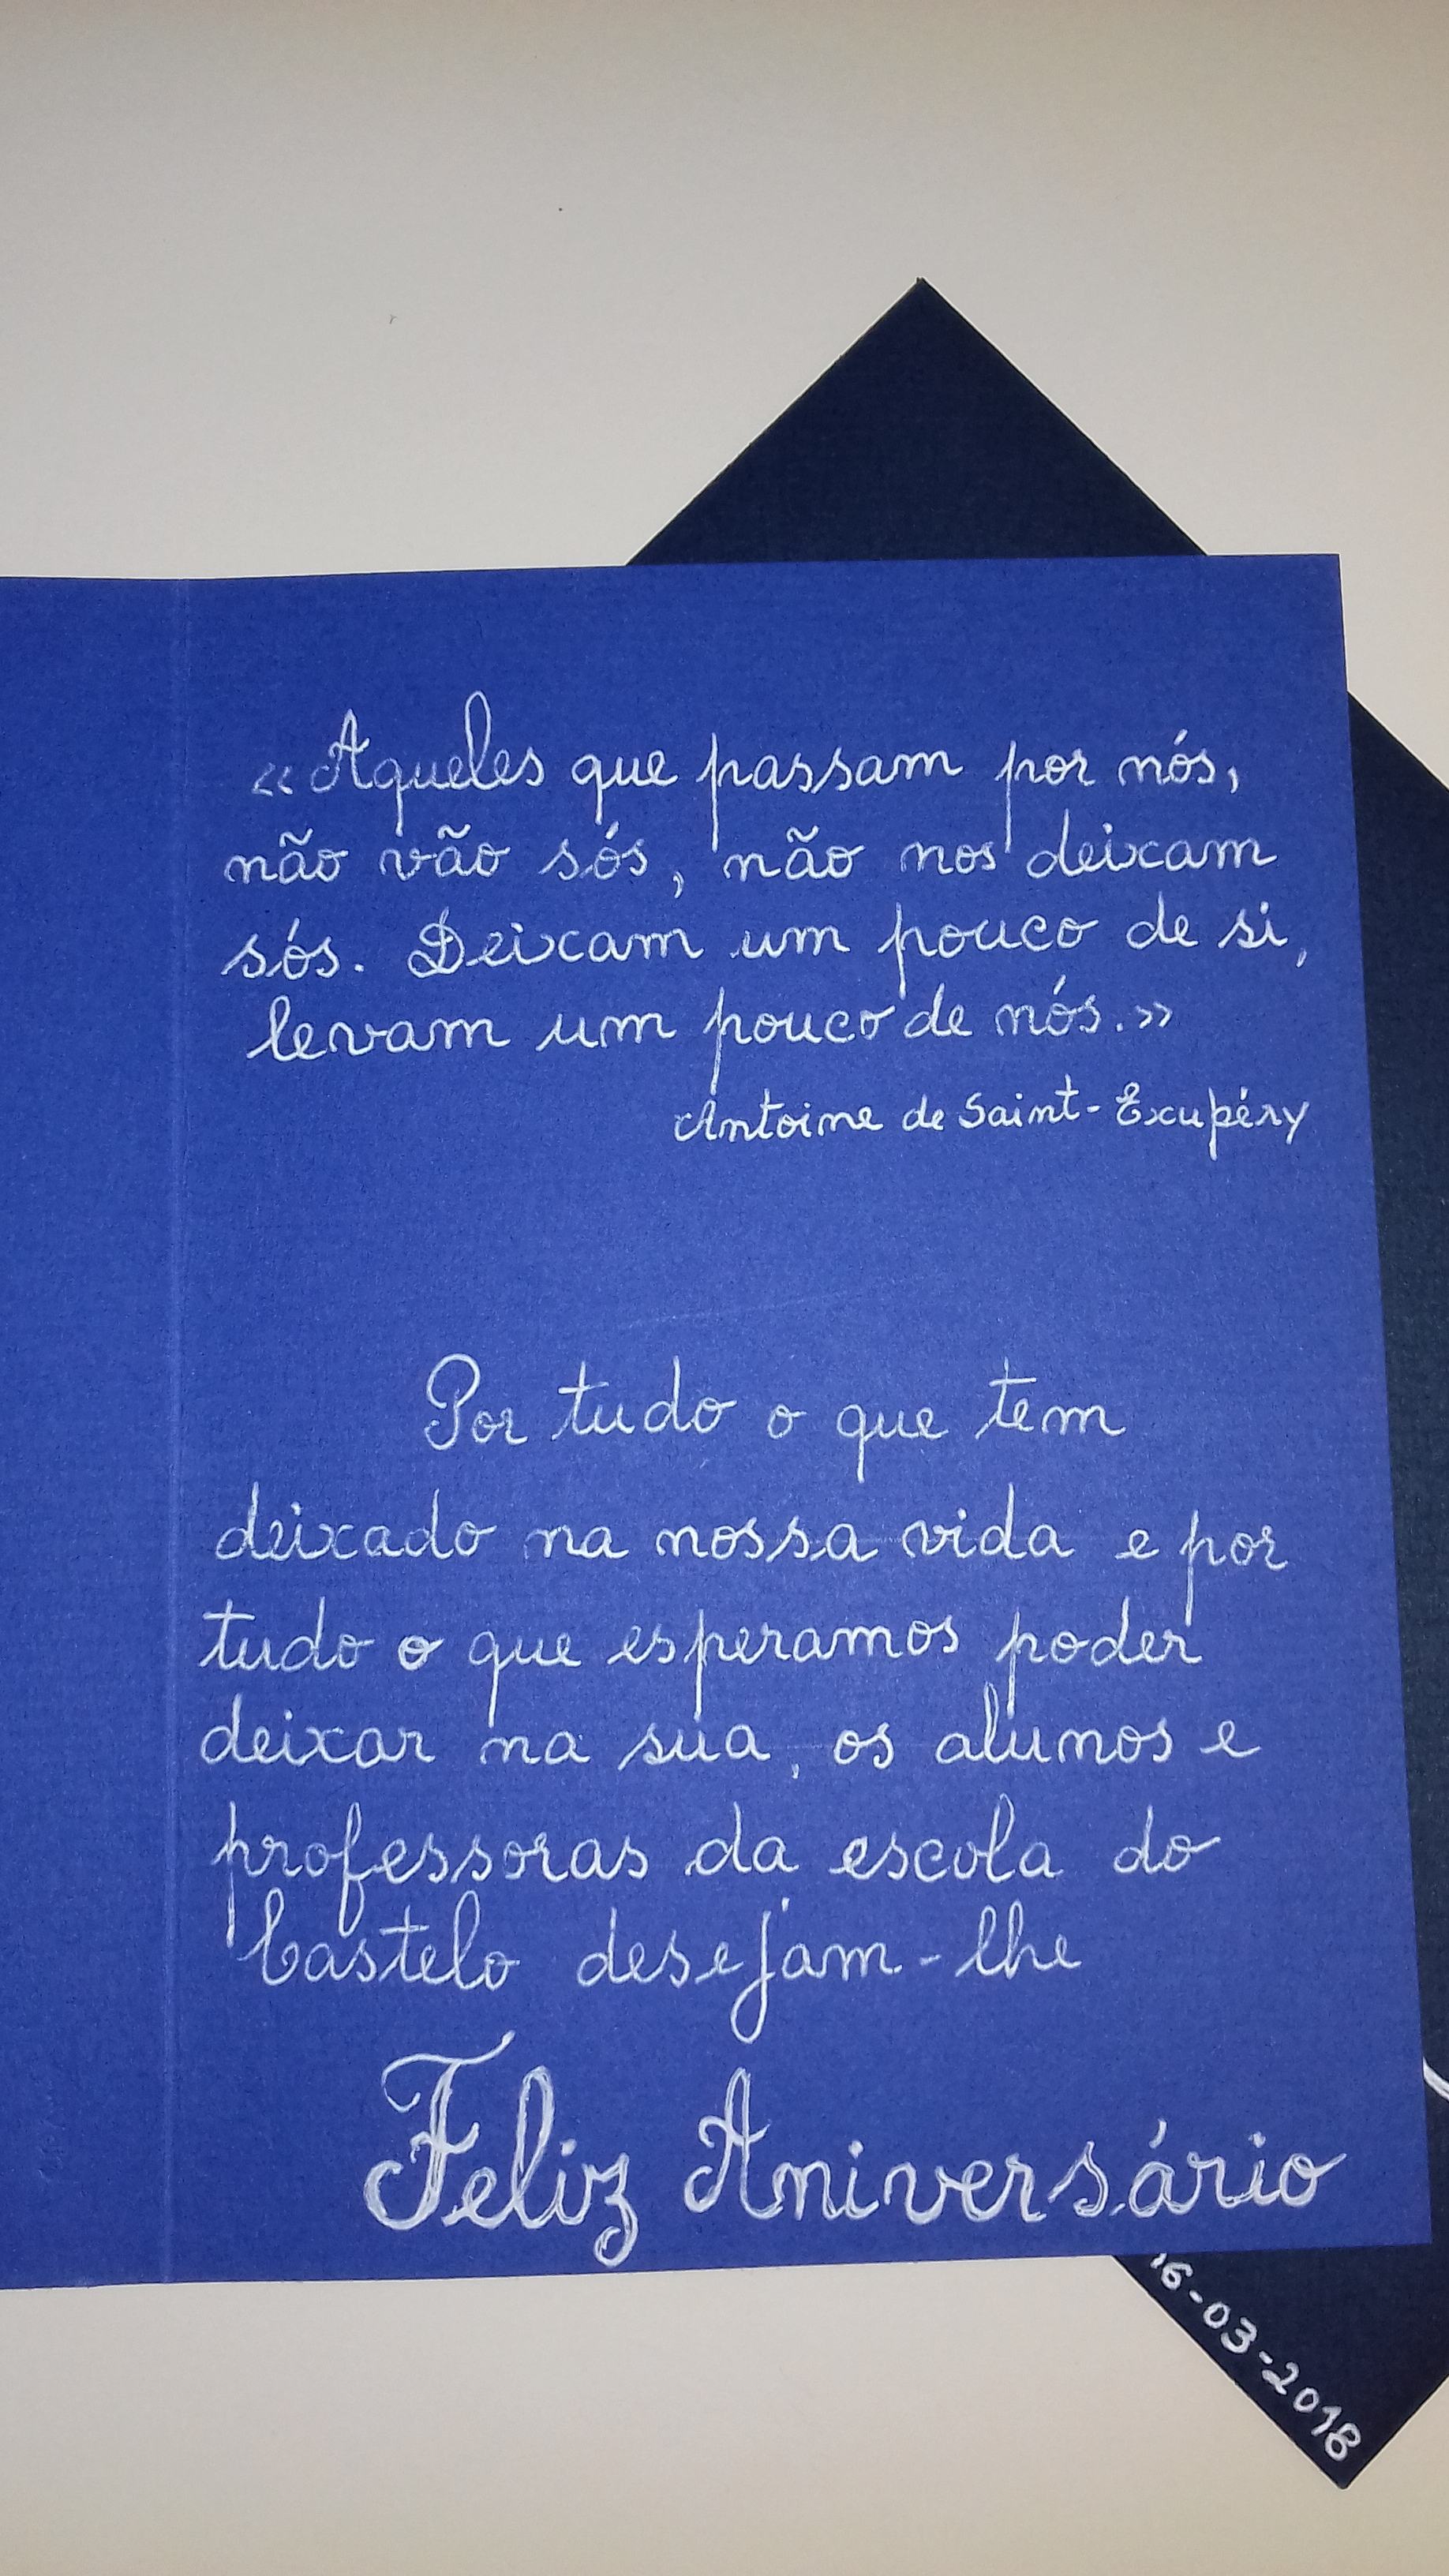 «Aqueles que passam por nós,
não vão sós, não nos deixam
sós. Deixam um pouco de si,
levam um pouco de nós.»
Antoine de Saint-Exupéry
Por tudo o que tem
deixado na nossa vida e por
tudo o que esperamos poder
deixar na sua, os alunos e
professoras da escola do
Castelo desejam-lhe
Feliz Aniversário
16-03-2018